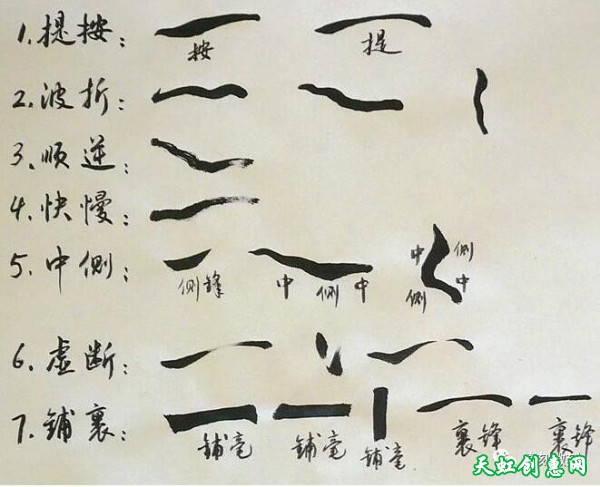 1.提按: 按 提
2.波折:
3.顺逆:
4.快慢:
5.中侧: 侧锋 中 侧 中 中 侧 侧 中
6.虚断:
7.铺裹: 铺毫 铺毫 铺毫 裹锋 裹锋
天虹创意网